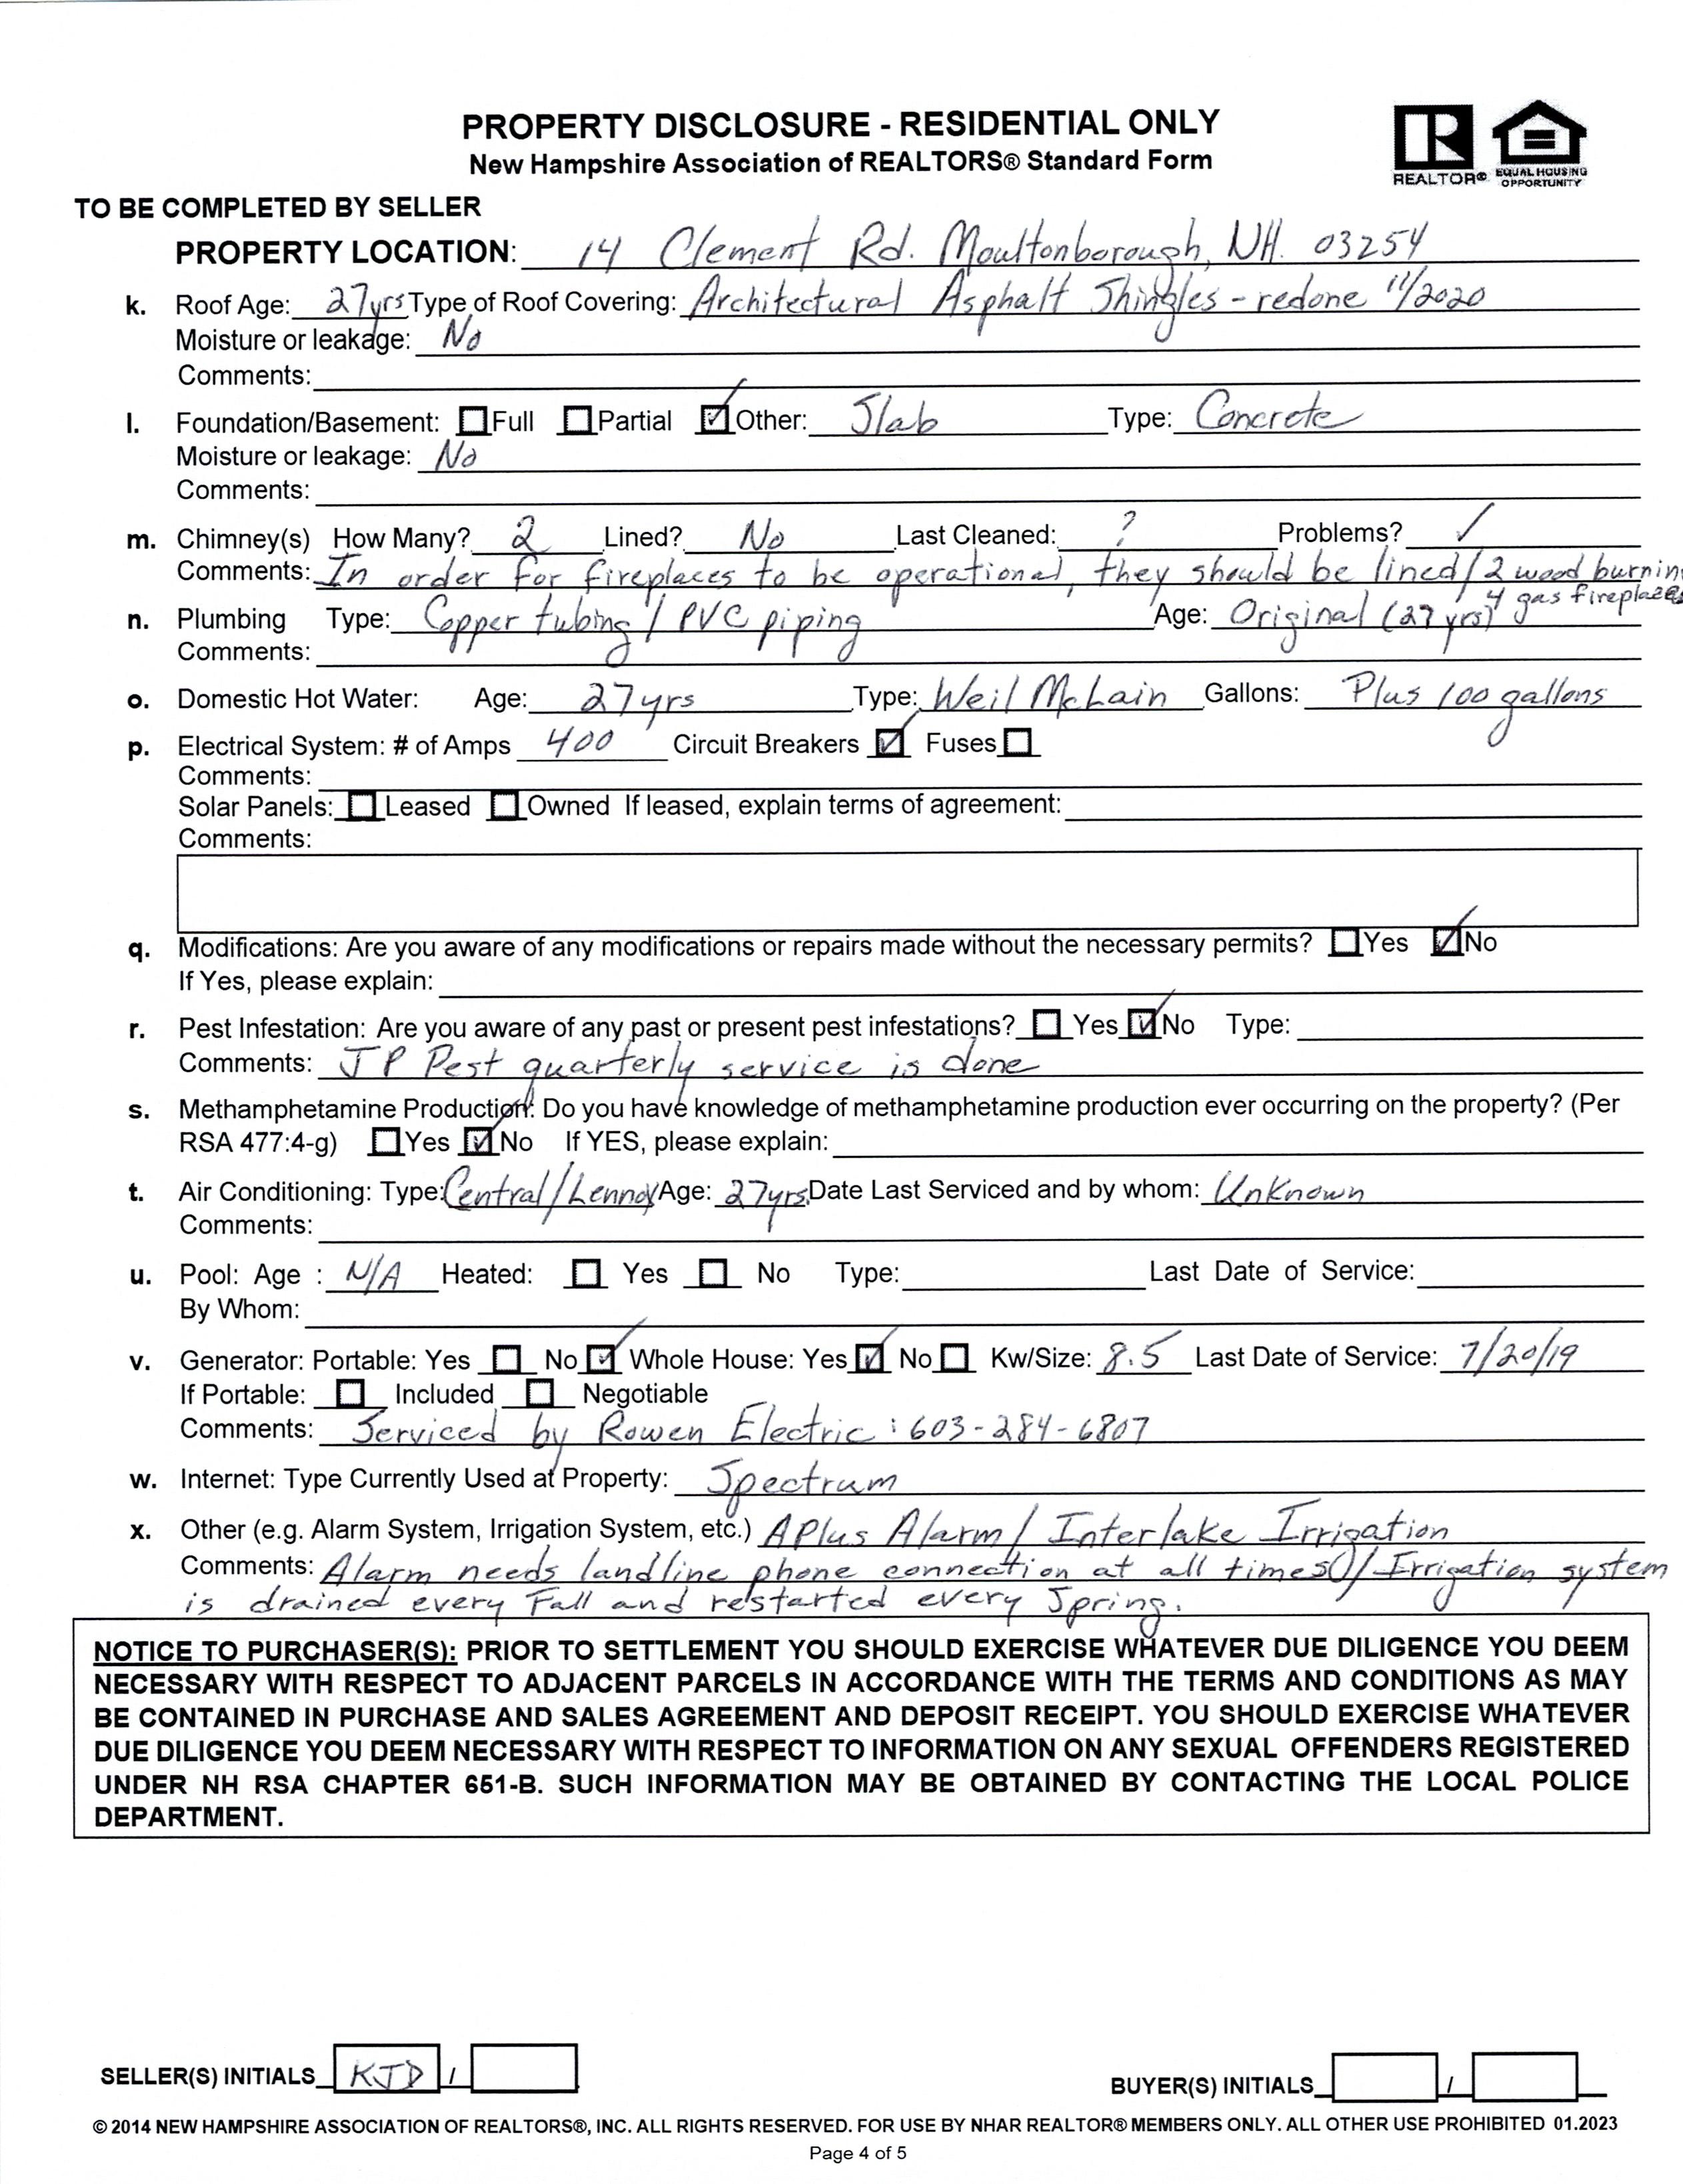 PROPERTY DISCLOSURE - RESIDENTIAL ONLY
New Hampshire Association of REALTORS® Standard Form
REALTOR® EQUAL HOUSING OPPORTUNITY
TO BE COMPLETED BY SELLER
PROPERTY LOCATION: 14 Clement Rd. Moultonborough, NH. 03254
k. Roof Age: 27yrs Type of Roof Covering: Architectural Asphalt Shingles - redone 11/2020
Moisture or leakage: No
Comments:
l. Foundation/Basement: ☐ Full ☐ Partial ☑ Other: Slab Type: Concrete
Moisture or leakage: No
Comments:
m. Chimney(s) How Many? 2 Lined? No Last Cleaned: ? Problems? ✓
Comments: In order for fireplaces to be operational, they should be lined/2 wood burnin
4 gas fireplaces
n. Plumbing Type: Copper tubing / PVC piping Age: Original (27 yrs)
Comments:
o. Domestic Hot Water: Age: 27yrs Type: Weil McLain Gallons: Plus 100 gallons
p. Electrical System: # of Amps 400 Circuit Breakers ☑ Fuses ☐
Comments:
Solar Panels: ☐ Leased ☐ Owned If leased, explain terms of agreement:
Comments:
q. Modifications: Are you aware of any modifications or repairs made without the necessary permits? ☐ Yes ☑ No
If Yes, please explain:
r. Pest Infestation: Are you aware of any past or present pest infestations? ☐ Yes ☑ No Type:
Comments: JP Pest quarterly service is done
s. Methamphetamine Production: Do you have knowledge of methamphetamine production ever occurring on the property? (Per
RSA 477:4-g) ☐ Yes ☑ No If YES, please explain:
t. Air Conditioning: Type: Central/Lennox Age: 27yrs Date Last Serviced and by whom: Unknown
Comments:
u. Pool: Age : N/A Heated: ☐ Yes ☐ No Type: Last Date of Service:
By Whom:
v. Generator: Portable: Yes ☐ No ☑ Whole House: Yes ☑ No ☐ Kw/Size: 8.5 Last Date of Service: 7/20/19
If Portable: ☐ Included ☐ Negotiable
Comments: Serviced by Rowen Electric : 603-284-6807
w. Internet: Type Currently Used at Property: Spectrum
x. Other (e.g. Alarm System, Irrigation System, etc.) APlus Alarm / Interlake Irrigation
Comments: Alarm needs landline phone connection at all times()/ Irrigation system
is drained every Fall and restarted every Spring.
NOTICE TO PURCHASER(S): PRIOR TO SETTLEMENT YOU SHOULD EXERCISE WHATEVER DUE DILIGENCE YOU DEEM
NECESSARY WITH RESPECT TO ADJACENT PARCELS IN ACCORDANCE WITH THE TERMS AND CONDITIONS AS MAY
BE CONTAINED IN PURCHASE AND SALES AGREEMENT AND DEPOSIT RECEIPT. YOU SHOULD EXERCISE WHATEVER
DUE DILIGENCE YOU DEEM NECESSARY WITH RESPECT TO INFORMATION ON ANY SEXUAL OFFENDERS REGISTERED
UNDER NH RSA CHAPTER 651-B. SUCH INFORMATION MAY BE OBTAINED BY CONTACTING THE LOCAL POLICE
DEPARTMENT.
SELLER(S) INITIALS KJD / BUYER(S) INITIALS /
© 2014 NEW HAMPSHIRE ASSOCIATION OF REALTORS®, INC. ALL RIGHTS RESERVED. FOR USE BY NHAR REALTOR® MEMBERS ONLY. ALL OTHER USE PROHIBITED 01.2023
Page 4 of 5